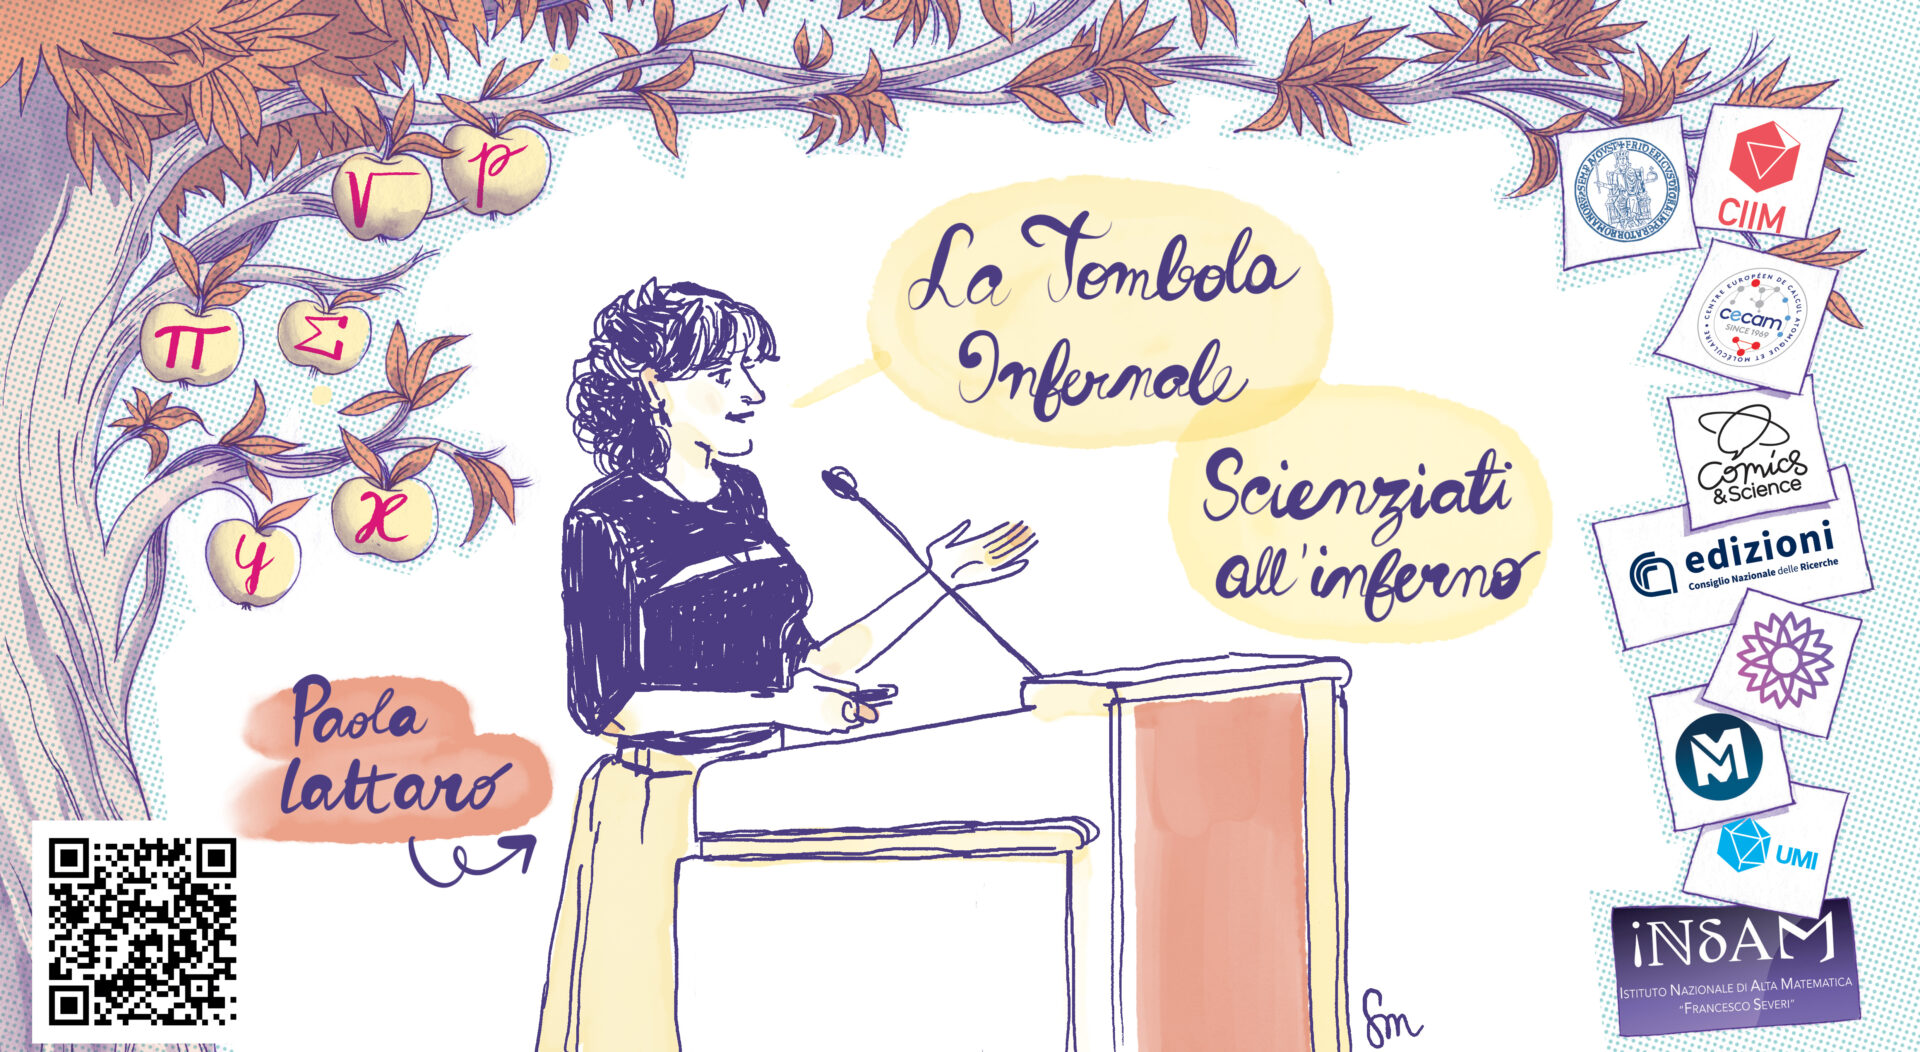 √
p
π
Σ
x
y
La Tombola
Infernale
Scienziati
all'inferno
Paola
Lattaro
CIIM
CENTRE EUROPÉEN DE CALCUL ATOMIQUE ET MOLÉCULAIRE
cecam
SINCE 1969
Comics
&Science
edizioni
Consiglio Nazionale delle Ricerche
M
UMI
iNδAM
ISTITUTO NAZIONALE DI ALTA MATEMATICA
"FRANCESCO SEVERI"
Sm